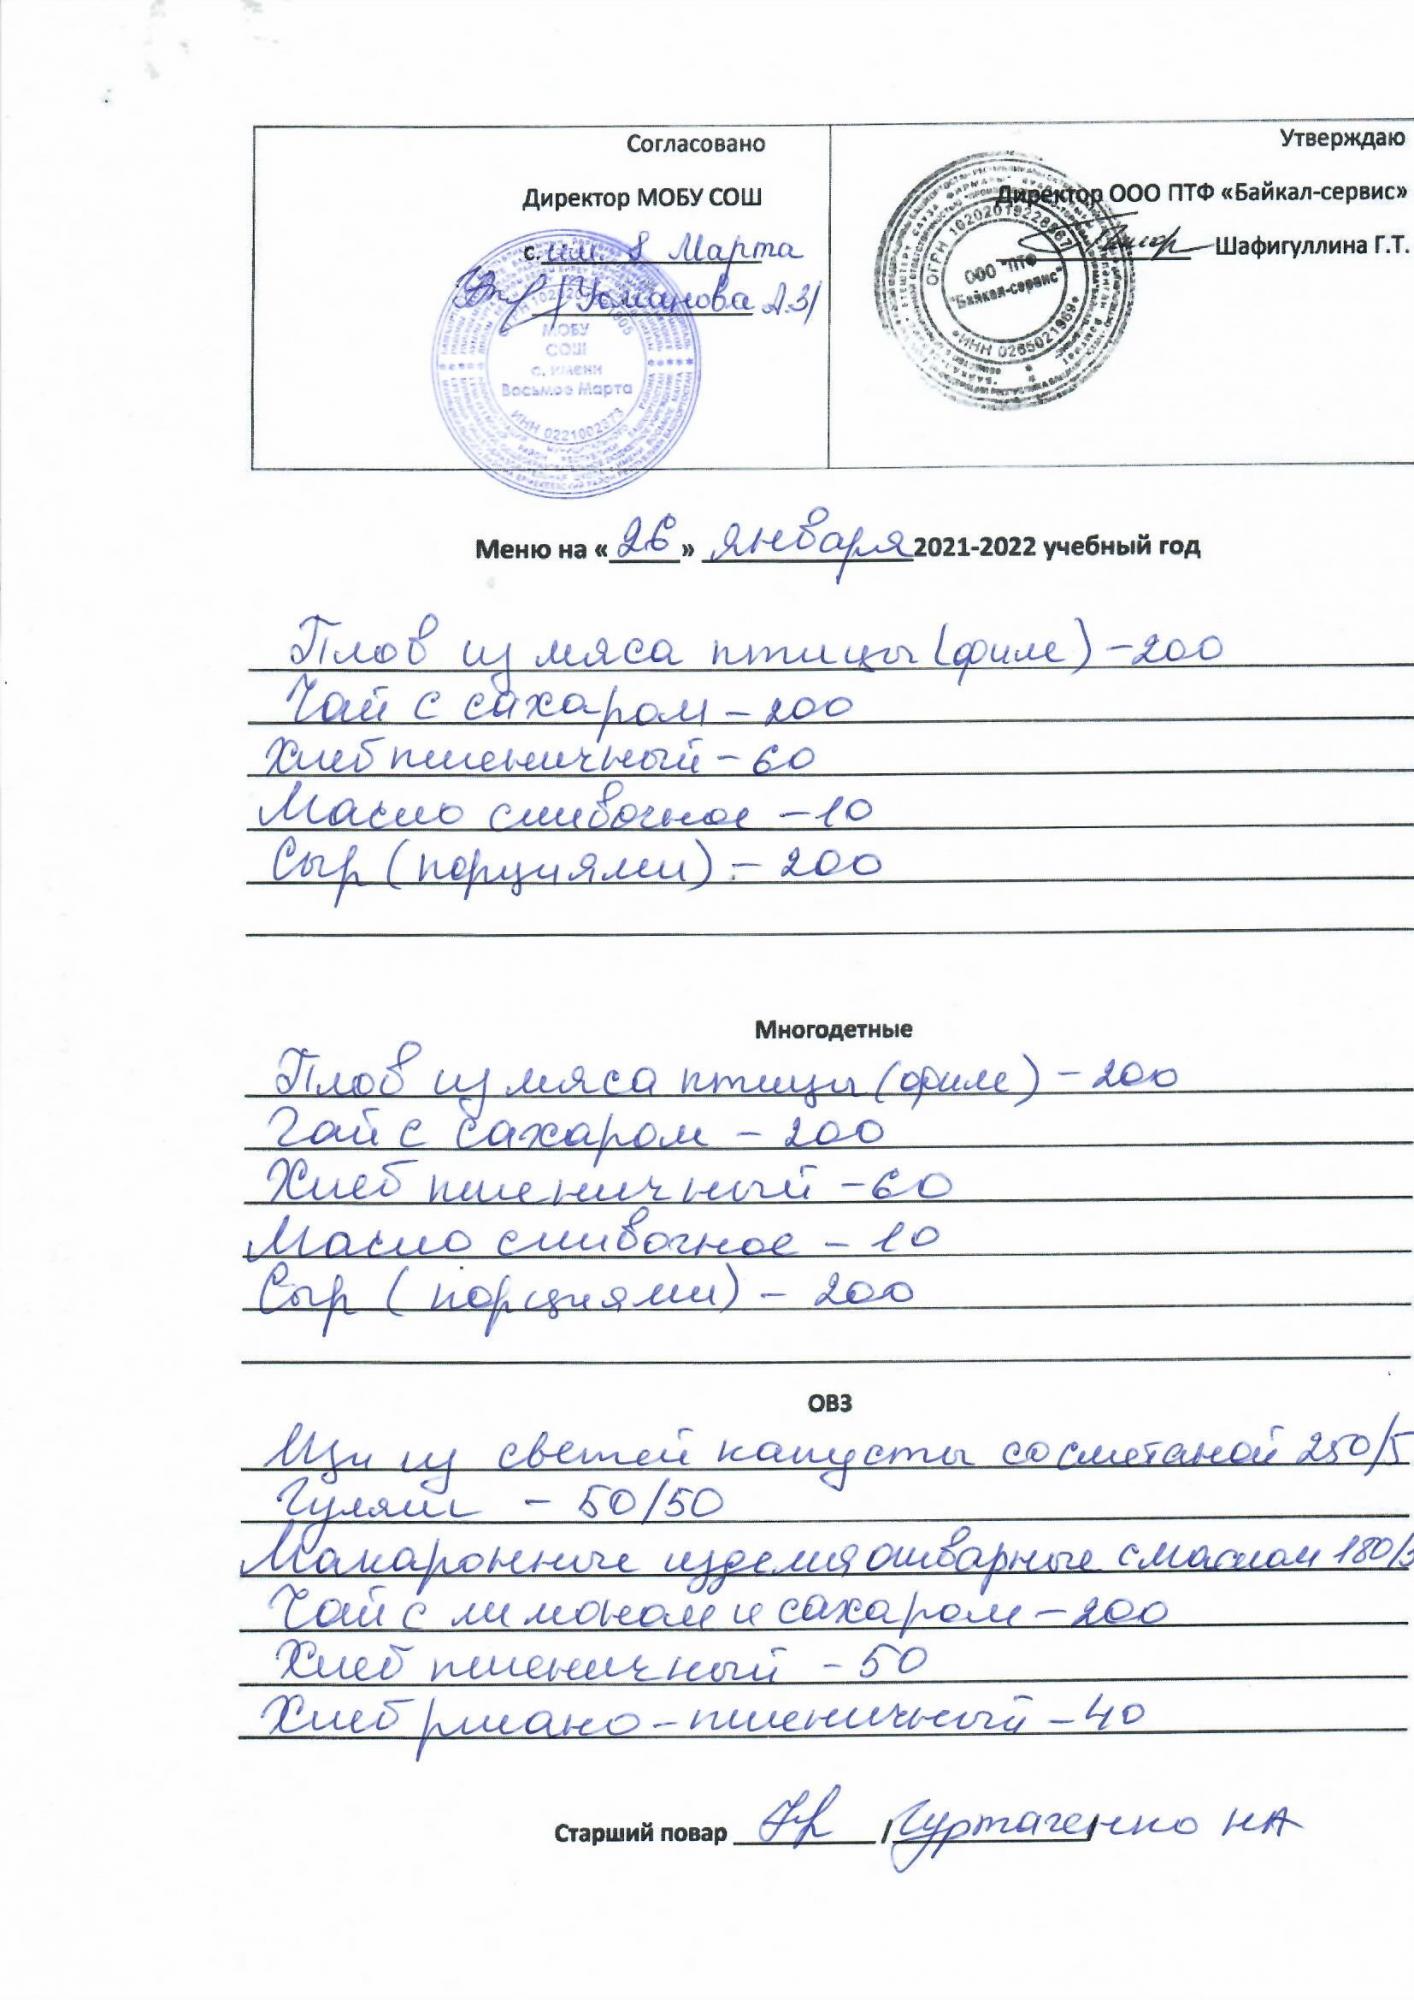 Согласовано
Директор МОБУ СОШ
с. им. 8 Марта
/ Усманова
МОБУ
СОШ
с. имени
Восьмое Марта
ИНН 0221002373
Утверждаю
Директор ООО ПТФ «Байкал-сервис»
Шафигуллина Г.Т.
ООО "ПТФ
"Байкал-сервис"
ИНН 0265021969
Меню на « 26 » января 2021-2022 учебный год
Плов из мяса птицы (филе) - 200
Чай с сахаром - 200
Хлеб пшеничный - 60
Масло сливочное - 10
Сыр (порциями) - 200
Многодетные
Плов из мяса птицы (филе) - 200
Чай с сахаром - 200
Хлеб пшеничный - 60
Масло сливочное - 10
Сыр (порциями) - 200
ОВЗ
Щи из свежей капусты со сметаной 250/5
Гуляш - 50/50
Макаронные изделия отварные с маслом 180/5
Чай с лимоном и сахаром - 200
Хлеб пшеничный - 50
Хлеб ржано-пшеничный - 40
Старший повар / Гуртаченко НА